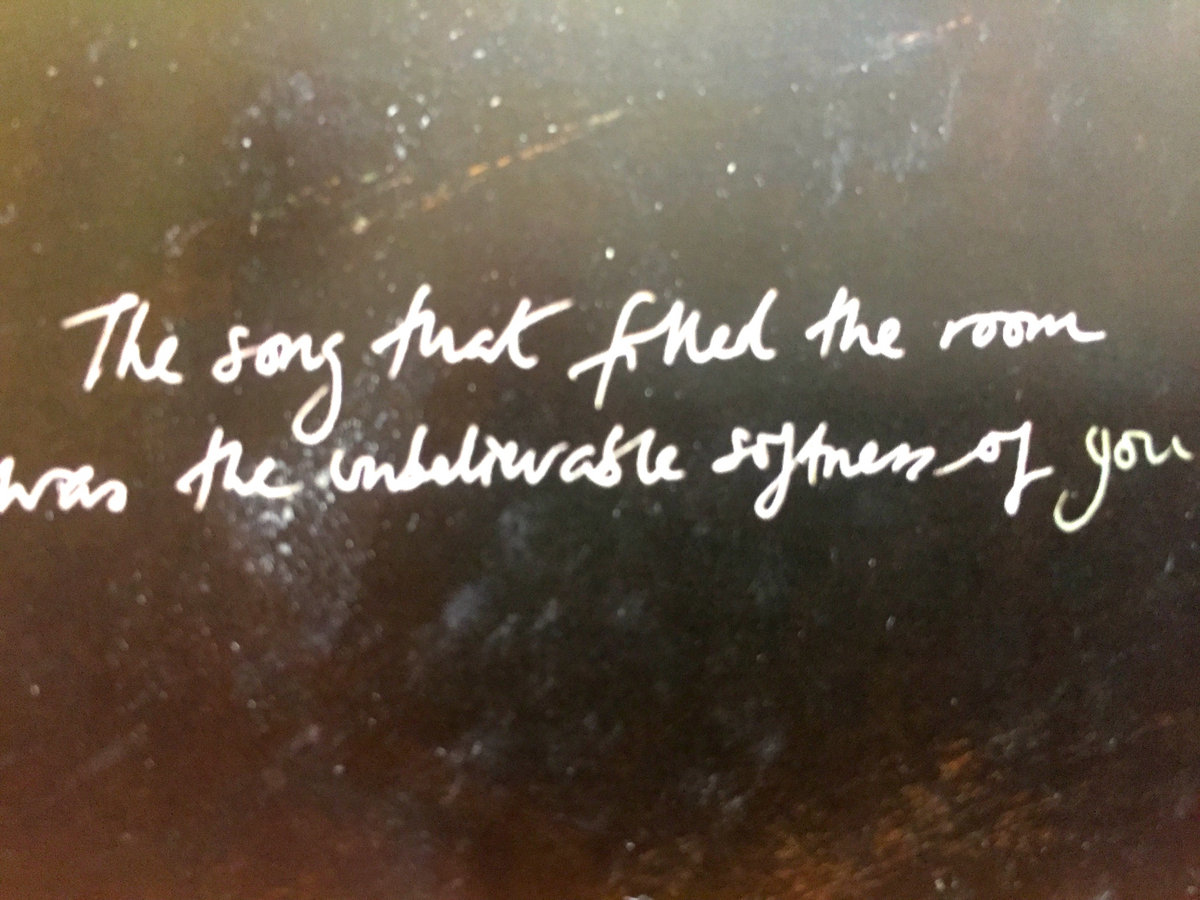 The song that filled the room
was the unbelievable softness of you